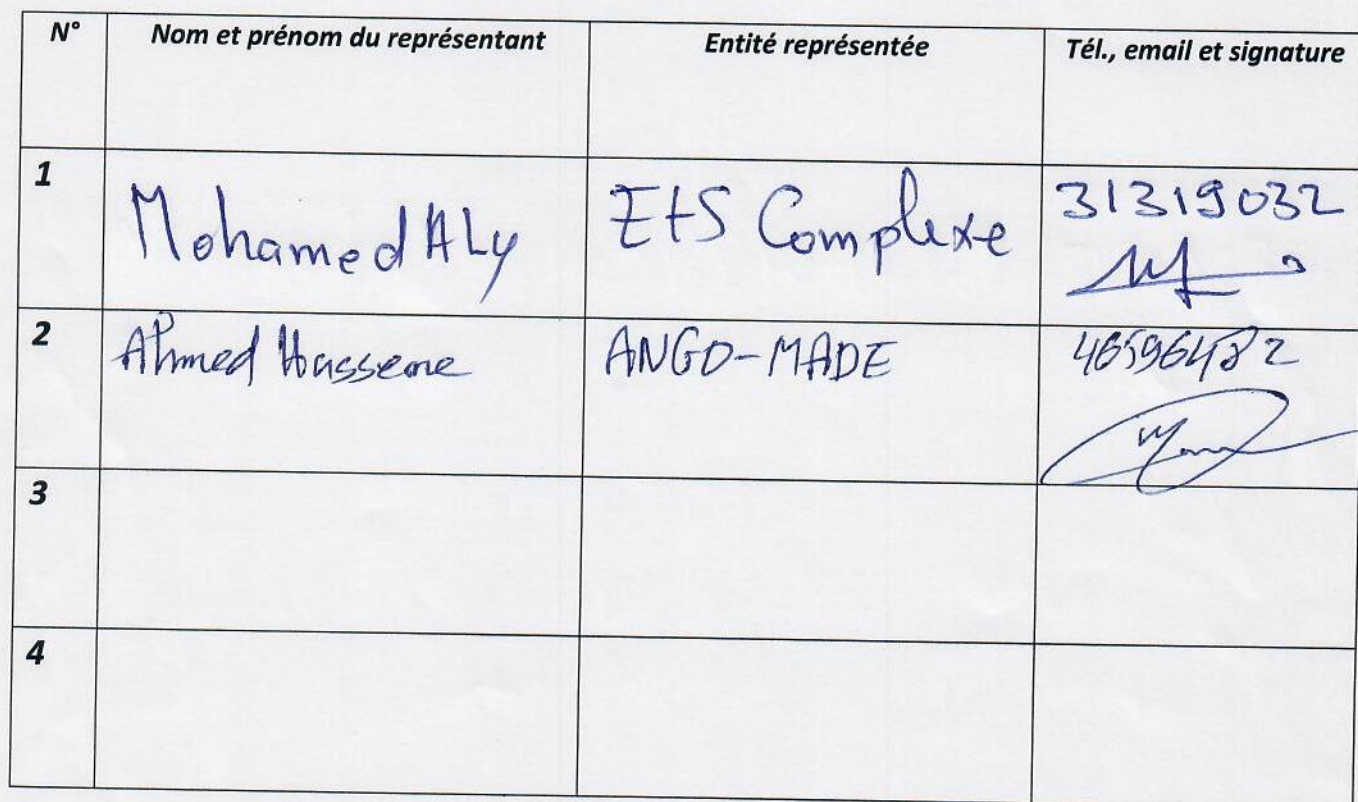 N° Nom et prénom du représentant Entité représentée Tél., email et signature
1 Mohamed ALy EtS Complexe 31319032
2 Ahmed Hassene ANGO-MADE 46596482
3
4